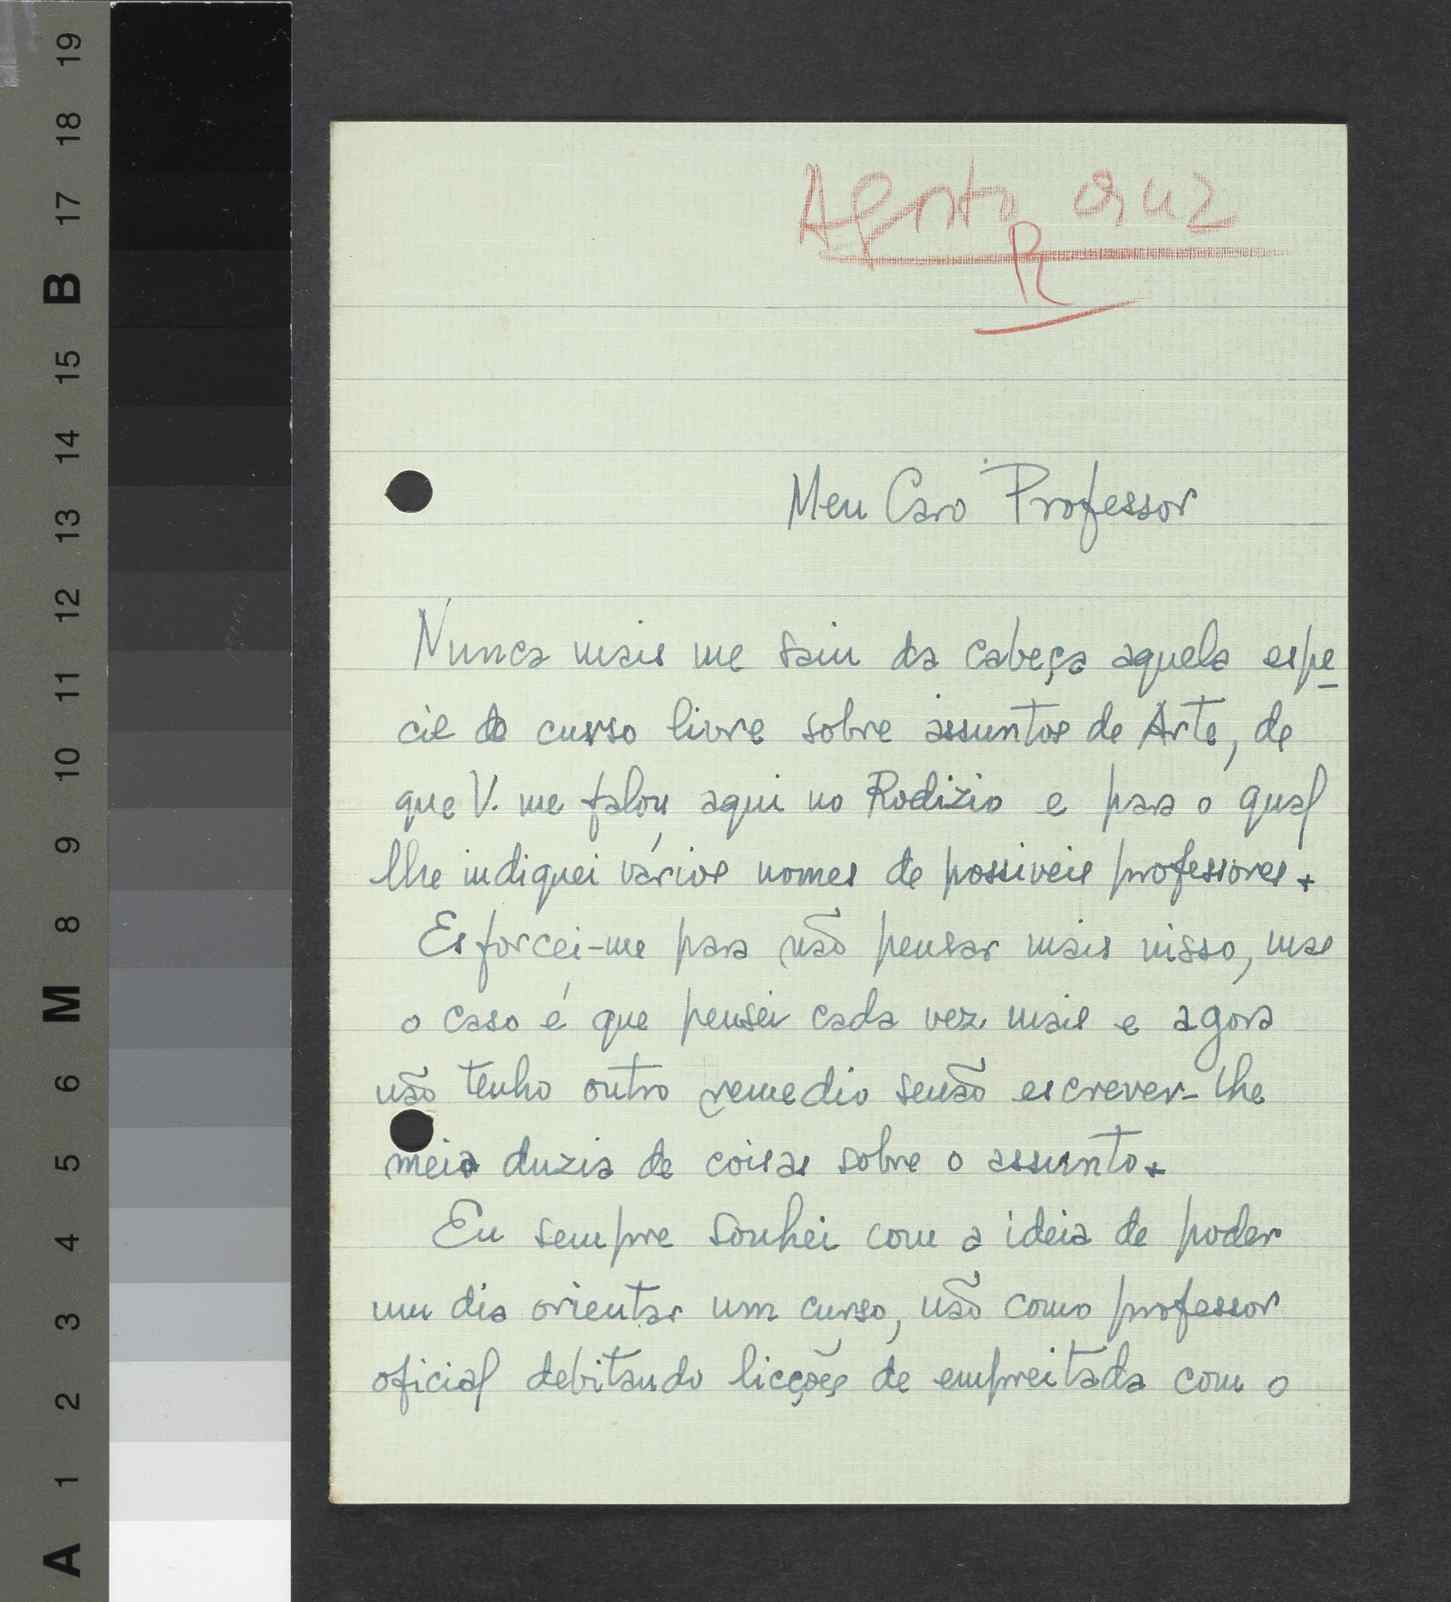 19
18
17
B
15
14
13
12
11
10
9
8
M
6
5
4
3
2
1
A
cruz
R
Meu Caro Professor
Nunca mais me saiu da cabeça aquela espe
cie de curso livre sobre assuntos de Arte, de
que V. me falou aqui no Rodizio e para o qual
lhe indiquei vários nomes de possiveis professores.
Esforcei-me para não pensar mais nisso, mas
o caso é que pensei cada vez mais e agora
não tenho outro remedio senão escrever-lhe
meia duzia de coisas sobre o assunto.
Eu sempre sonhei com a ideia de poder
um dia orientar um curso, não como professor
oficial debitando licções de empreitada com o